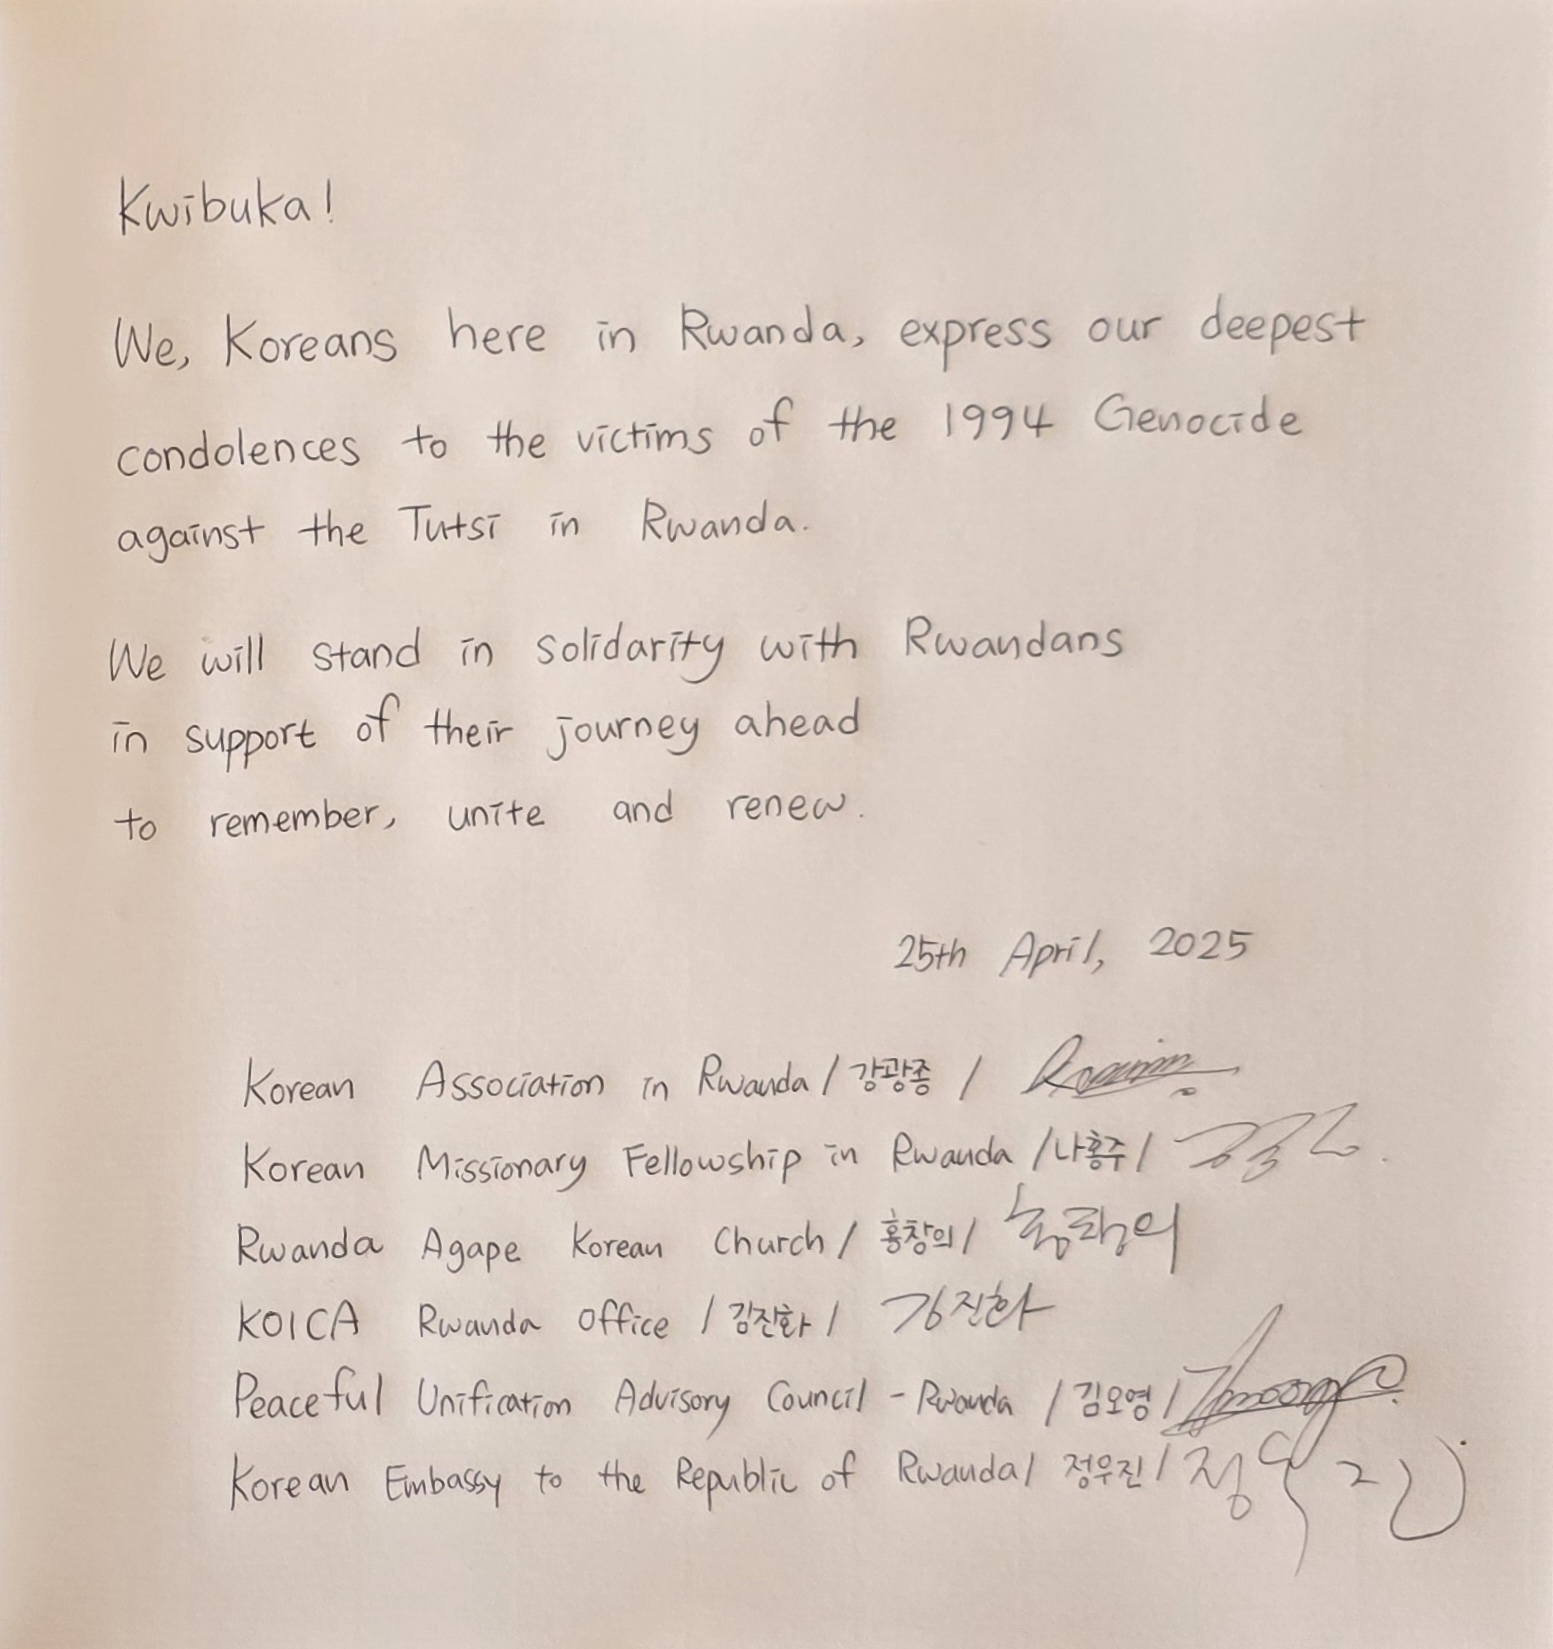 Kwibuka!
We, Koreans here in Rwanda, express our deepest
condolences to the victims of the 1994 Genocide
against the Tutsi in Rwanda.
We will stand in solidarity with Rwandans
in support of their journey ahead
to remember, unite and renew.
25th April, 2025
Korean Association in Rwanda / 강광종 /
Korean Missionary Fellowship in Rwanda / 나홍주 /
Rwanda Agape Korean Church / 홍창의 / 홍창의
KOICA Rwanda Office / 김진화 / 김진화
Peaceful Unification Advisory Council - Rwanda / 김오영 /
Korean Embassy to the Republic of Rwanda / 정우진 / 정우진